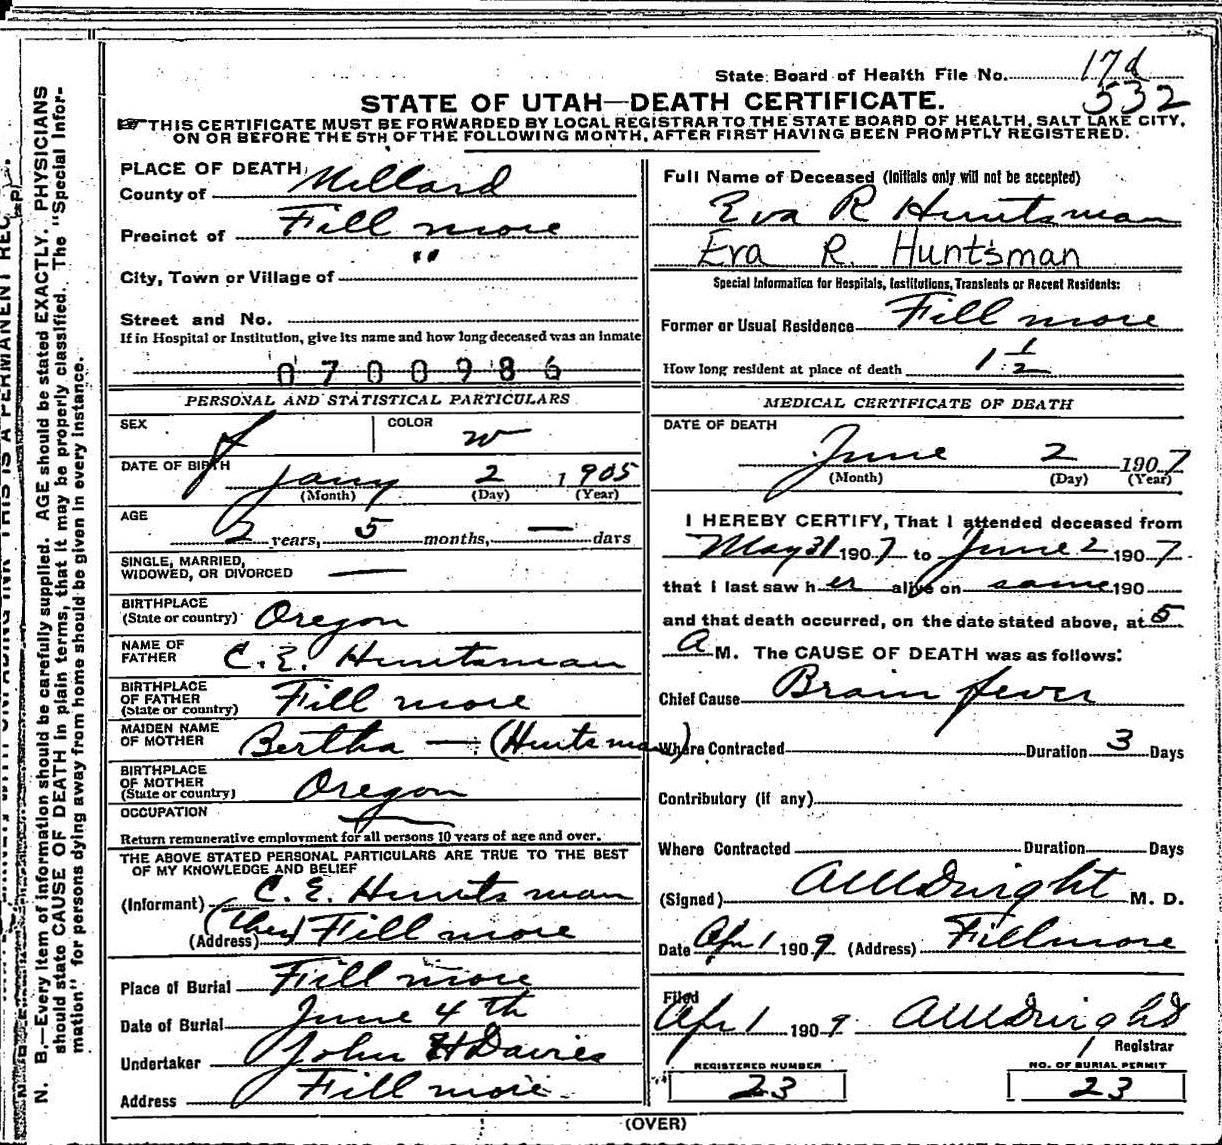 State Board of Health File No. 17d
532
STATE OF UTAH—DEATH CERTIFICATE.
THIS CERTIFICATE MUST BE FORWARDED BY LOCAL REGISTRAR TO THE STATE BOARD OF HEALTH, SALT LAKE CITY,
ON OR BEFORE THE 5TH OF THE FOLLOWING MONTH, AFTER FIRST HAVING BEEN PROMPTLY REGISTERED.
PLACE OF DEATH,
County of Millard
Precinct of Fill more
City, Town or Village of "
Street and No.
If in Hospital or Institution, give its name and how long deceased was an inmate
0700986
PERSONAL AND STATISTICAL PARTICULARS
SEX f COLOR w
DATE OF BIRTH Jany 2 1905
(Month) (Day) (Year)
AGE
2 years, 5 months, — days
SINGLE, MARRIED,
WIDOWED, OR DIVORCED —
BIRTHPLACE
(State or country) Oregon
NAME OF
FATHER C. E. Huntsman
BIRTHPLACE
OF FATHER
(State or country) Fill more
MAIDEN NAME
OF MOTHER Bertha — (Huntsman)
BIRTHPLACE
OF MOTHER
(State or country) Oregon
OCCUPATION
Return remunerative employment for all persons 10 years of age and over.
THE ABOVE STATED PERSONAL PARTICULARS ARE TRUE TO THE BEST
OF MY KNOWLEDGE AND BELIEF
(Informant) C. E. Huntsman
(Address) Fill more
Place of Burial Fill more
Date of Burial June 4th
Undertaker John H Davies
Address Fill more
Full Name of Deceased (Initials only will not be accepted)
Eva R Huntsman
Eva R. Huntsman
Special Information for Hospitals, Institutions, Transients or Recent Residents:
Former or Usual Residence Fill more
How long resident at place of death 1 1/2
MEDICAL CERTIFICATE OF DEATH
DATE OF DEATH
June 2 1907
(Month) (Day) (Year)
I HEREBY CERTIFY, That I attended deceased from
May 31 1907 to June 2 1907
that I last saw her alive on same 190
and that death occurred, on the date stated above, at 5
A M. The CAUSE OF DEATH was as follows:
Chief Cause Brain fever
Where Contracted Duration 3 Days
Contributory (if any)
Where Contracted Duration Days
(Signed) M. D.
Date Apr 1 1909 (Address) Fillmore
Filed
Apr 1 1909
Registrar
REGISTERED NUMBER
23
NO. OF BURIAL PERMIT
23
(OVER)
N. B.—Every item of information should be carefully supplied. AGE should be stated EXACTLY. PHYSICIANS
should state CAUSE OF DEATH in plain terms, that it may be properly classified. The "Special Infor-
mation" for persons dying away from home should be given in every instance.